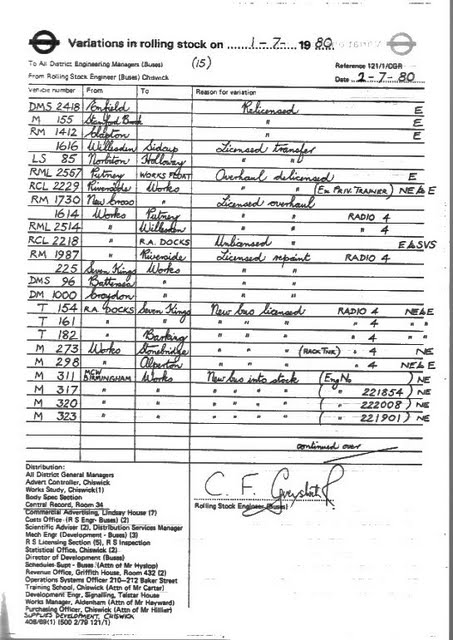 Variations in rolling stock on 1-7- 1980
To All District Engineering Managers (Buses) (15) Reference 121/1/CGR
From Rolling Stock Engineer (Buses) Chiswick Date 2-7-80
Vehicle number From To Reason for variation
DMS 2418 Enfield Relicensed E
M 155 Stamford Brook " E
RM 1412 Clapton " E
1616 Willesden Sidcup Licensed transfer
LS 85 Norbiton Holloway " "
RML 2567 Putney WORKS FLOAT Overhaul delicensed E
RCL 2229 Riverside Works " " (Ex PRIV. TRAINER) NE & E
RM 1730 New Cross " Licensed overhaul
1614 Works Putney " " RADIO 4
RML 2514 " Willesden " " " 4
RCL 2218 " R.A. DOCKS Unlicensed " E & SVS
RM 1987 " Riverside Licensed repaint RADIO 4
225 Seven Kings Works " "
DMS 96 Battersea " " "
DM 1000 Croydon " " "
T 154 R.A. DOCKS Seven Kings New bus licensed RADIO 4 NE & E
T 161 " " " " " " 4 " "
T 182 " Barking " " " " 4 " "
M 273 Works Stonebridge " " " (RACK TNR) " 4 NE
M 298 " Alperton " " " " 4 NE & E
M 311 MCW BIRMINGHAM Works New bus into stock (Eng No ) NE
M 317 " " " " " " ( " 221854 ) NE
M 320 " " " " " " ( " 222008 ) NE
M 323 " " " " " " ( " 221901 ) NE
continued over
Distribution:
All District General Managers
Advers Controller, Chiswick
Works Study, Chiswick(1)
Body Spec Section
Central Record, Room 34
Commercial Advertising, Lindsay House (7)
Costs Office (R S Engr- Buses) (2)
Scientific Adviser (2), Distribution Services Manager
Mech Engr (Development - Buses) (3)
R S Licensing Section (5), R S Inspection
Statistical Office, Chiswick (2)
Director of Development (Buses)
Schedules Supt - Buses (Attn of Mr Hyslop)
Revenue Office, Griffith House, Room 432 (2)
Operations Systems Officer 210–212 Baker Street
Training School, Chiswick (Attn of Mr Carter)
Development Engr, Signalling, Telstar House
Works Manager, Aldenham (Attn of Mr Hayward)
Purchasing Officer, Chiswick (Attn of Mr Hillier)
SUPPLIES DEVELOPMENT, CHISWICK
408/69(1) (500 2/79 121/1)
C. F.
Rolling Stock Engineer (Buses)